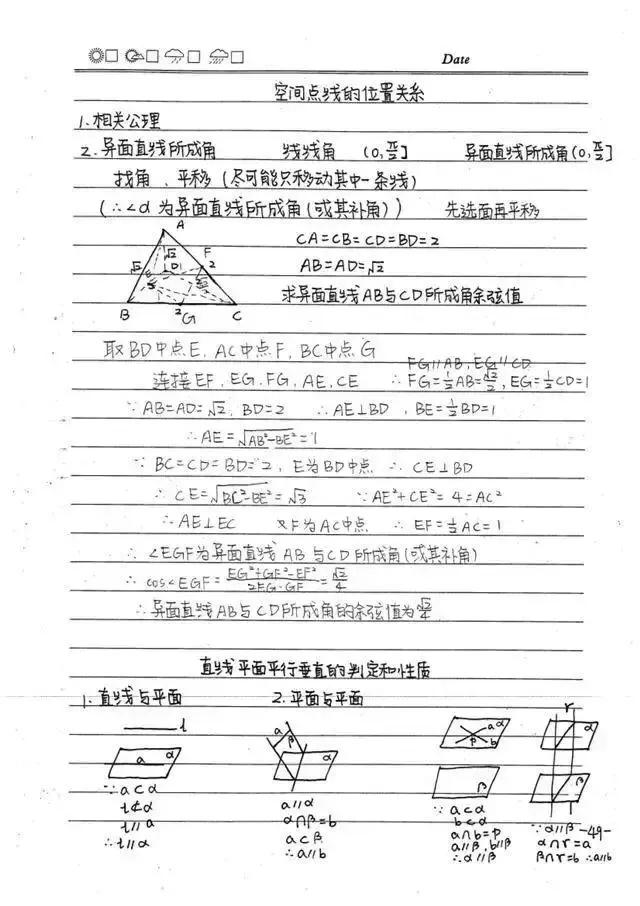 Date
空间点线的位置关系
1.相关公理
2.异面直线所成角 线线角 (0,π/2] 异面直线所成角(0,π/2]
找角、平移(尽可能只移动其中一条线)
(∴∠α为异面直线所成角(或其补角)) 先选面再平移
A
CA=CB=CD=BD=2
F
√2 √2 D 2
AB=AD=√2
B 2 G C
求异面直线AB与CD所成角余弦值
取BD中点E, AC中点F, BC中点G
FG∥AB, EG∥CD
连接EF, EG, FG, AE, CE ∴FG=½AB=√2/2, EG=½CD=1
∵AB=AD=√2, BD=2 ∴AE⊥BD, BE=½BD=1
∴AE=√(AB²-BE²)=1
∵BC=CD=BD=2, E为BD中点 ∴CE⊥BD
∴CE=√(BC²-BE²)=√3 ∵AE²+CE²=4=AC²
∴AE⊥EC 又F为AC中点 ∴EF=½AC=1
∴∠EGF为异面直线AB与CD所成角(或其补角)
∴cos∠EGF=(EG²+GF²-EF²)/(2EG·GF)=√2/4
∴异面直线AB与CD所成角的余弦值为√2/4
直线平面平行垂直的判定和性质
1.直线与平面 2.平面与平面
l
a α
∵a⊂α
l⊄α
l∥a
∴l∥α
a β α
a∥α
α∩β=b
a⊂β
∴a∥b
a α P b
β
∵a⊂α
b⊂α
a∩b=P
a∥β, b∥β
∴α∥β
r
α
β
∵α∥β
-49-
α∩r=a
β∩r=b ∴a∥b